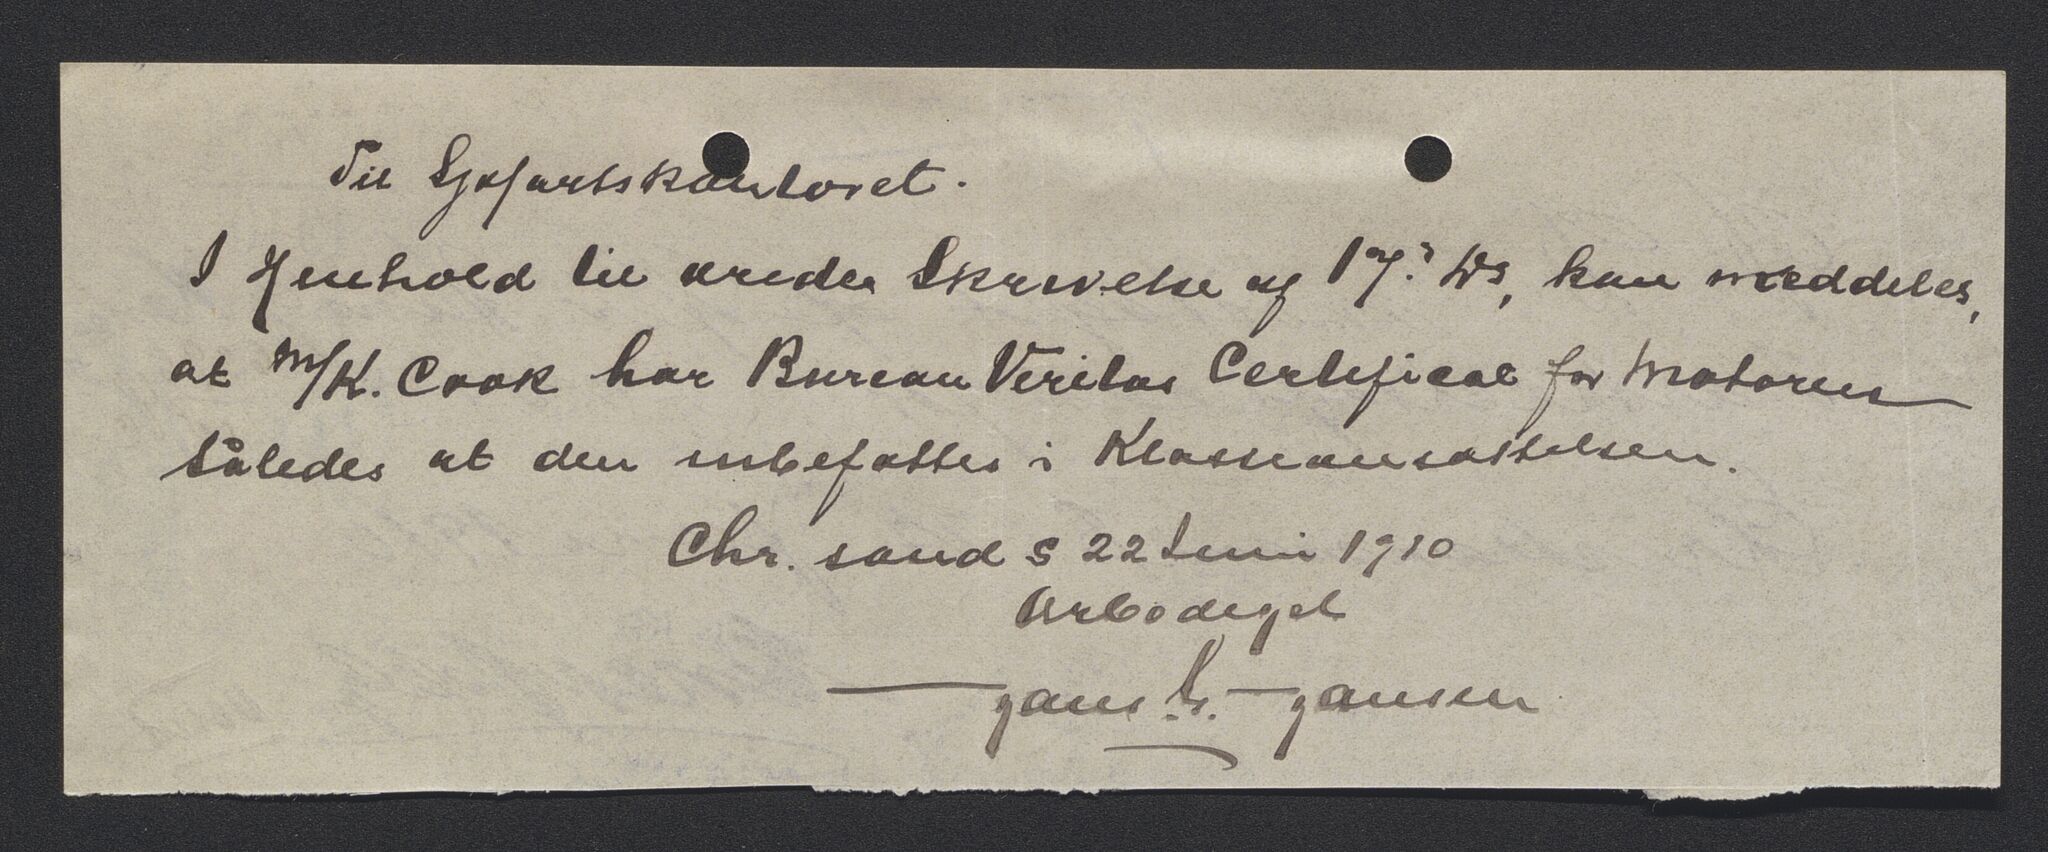 Til Sjøfartskontoret.
I Henhold til ærede Skrivelse af 17. ds, kan meddeles,
at M/K. Cook har Bureau Veritas Certificat for Motoren
således at den inbefattes i Klasseansættelsen.
Chr. sand S 22 Juni 1910
Ærbødigst
Hans S. Hansen